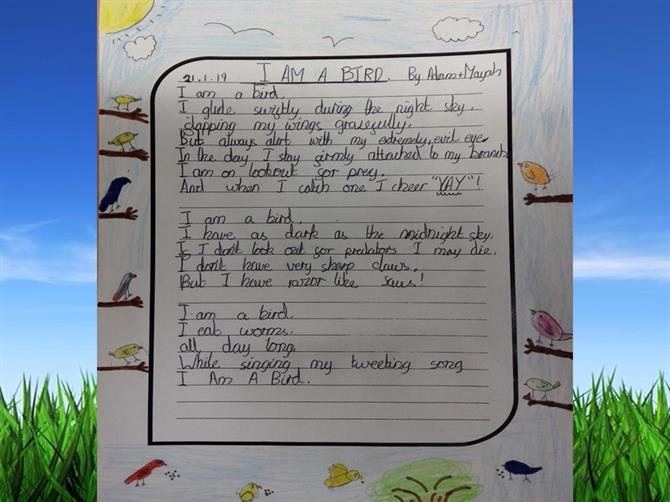 21.1.19 I AM A BIRD. By Adam + Mayah
I am a bird.
I glide swiftly during the night sky.
flapping my wings gracefully.
But always alert with my extremely evil eye.
In the day I stay firmly attached to my branch.
I am on lookout for prey.
And when I catch one I cheer "YAY"!
I am a bird.
I have as dark as the midnight sky.
If I don't look out for predators I may die.
I don't have very sharp claws.
But I have razor like saws!
I am a bird.
I eat worms.
all day long
While singing my tweeting song
I Am A Bird.